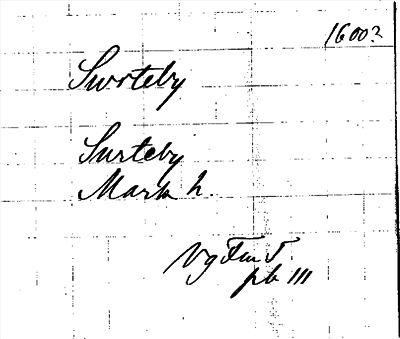 1600?
Swrteby
Surteby
Mark h.
VgFmT
pb III